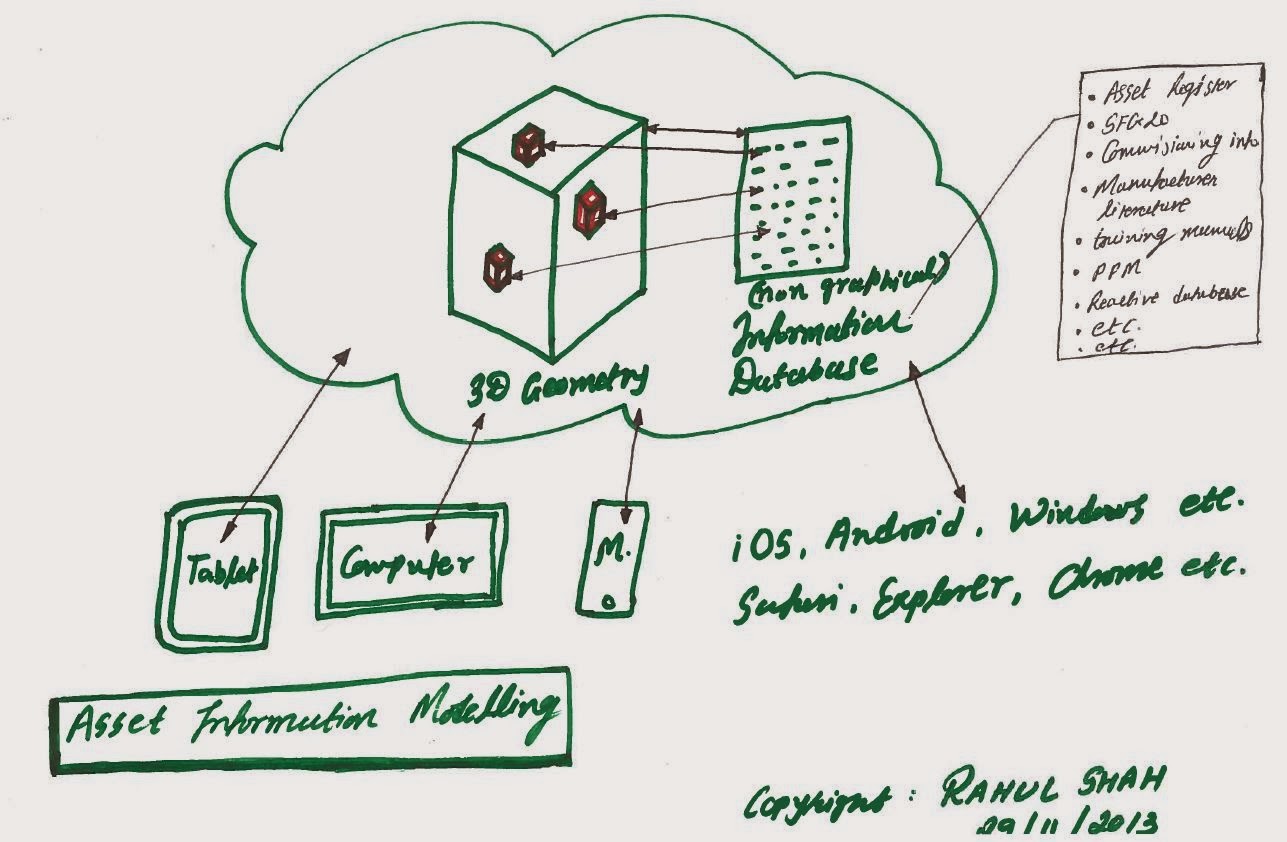 3D Geometry
(non graphical)
Information
Database
• Asset Register
• SFG20
• Commisioning info
• Manufacturer
literature
• training manuals
• PPM
• Reactive database
• etc.
• etc.
Tablet
Computer
M.
iOS, Android, Windows etc.
Safari, Explorer, Chrome etc.
Asset Information Modelling
Copyright : RAHUL SHAH
29/11/2013